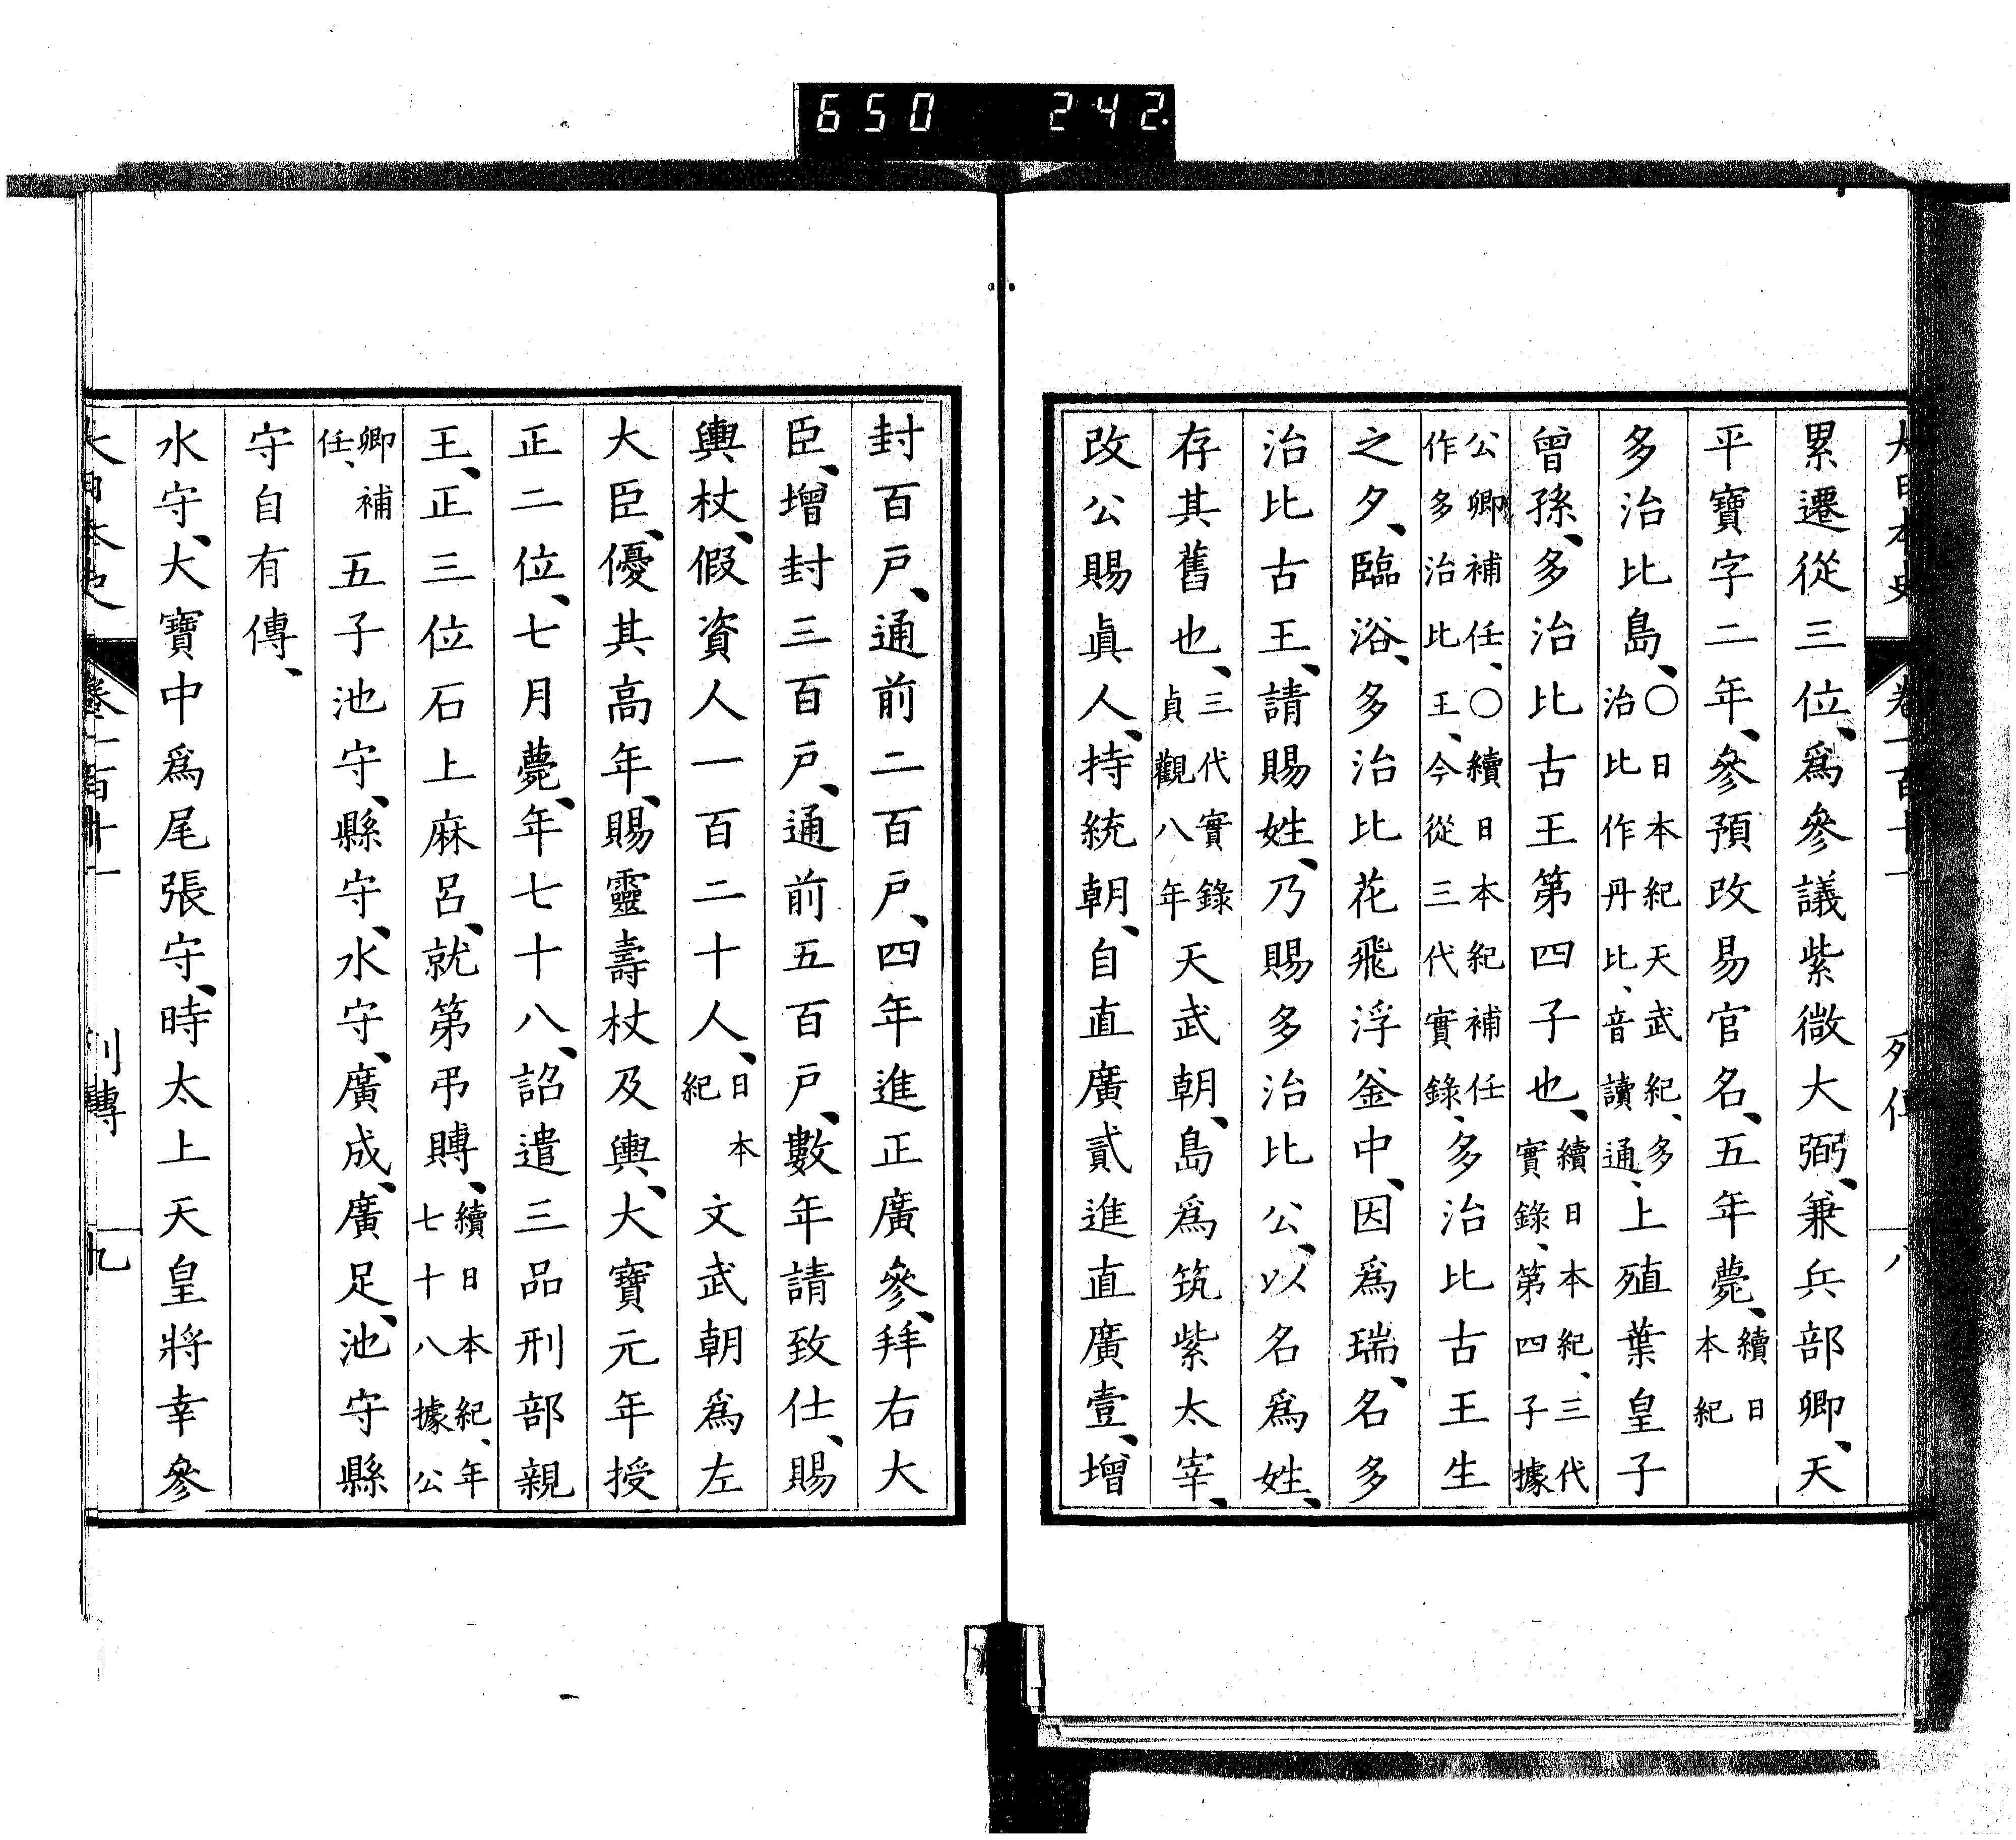 650 242
大日本史 卷一百十一 列傳 八
累遷從三位、爲參議紫微大弼、兼兵部卿、天
平寶字二年、參預改易官名、五年薨、續日本紀
多治比島、〇日本紀天武紀、多治比作丹比、音讀通、上殖葉皇子
曾孫、多治比古王第四子也、續日本紀、三代實錄、第四子據
公卿補任、〇續日本紀補任作多治比王、今從三代實錄、多治比古王生
之夕、臨浴、多治比花飛浮釜中、因爲瑞、名多
治比古王、請賜姓、乃賜多治比公、以名爲姓、
存其舊也、三代實錄貞觀八年天武朝、島爲筑紫太宰、
改公賜眞人、持統朝、自直廣貳進直廣壹、增
封百戶、通前二百戶、四年進正廣參、拜右大
臣、增封三百戶、通前五百戶、數年請致仕、賜
輿杖、假資人一百二十人、日本紀文武朝爲左
大臣、優其高年、賜靈壽杖及輿、大寶元年授
正二位、七月薨、年七十八、詔遣三品刑部親
王、正三位石上麻呂、就第弔賻、續日本紀、年七十八據公
卿補任、五子池守、縣守、水守、廣成、廣足、池守縣
守自有傳、
水守、大寶中爲尾張守、時太上天皇將幸參
大日本史 卷一百十一 列傳 九